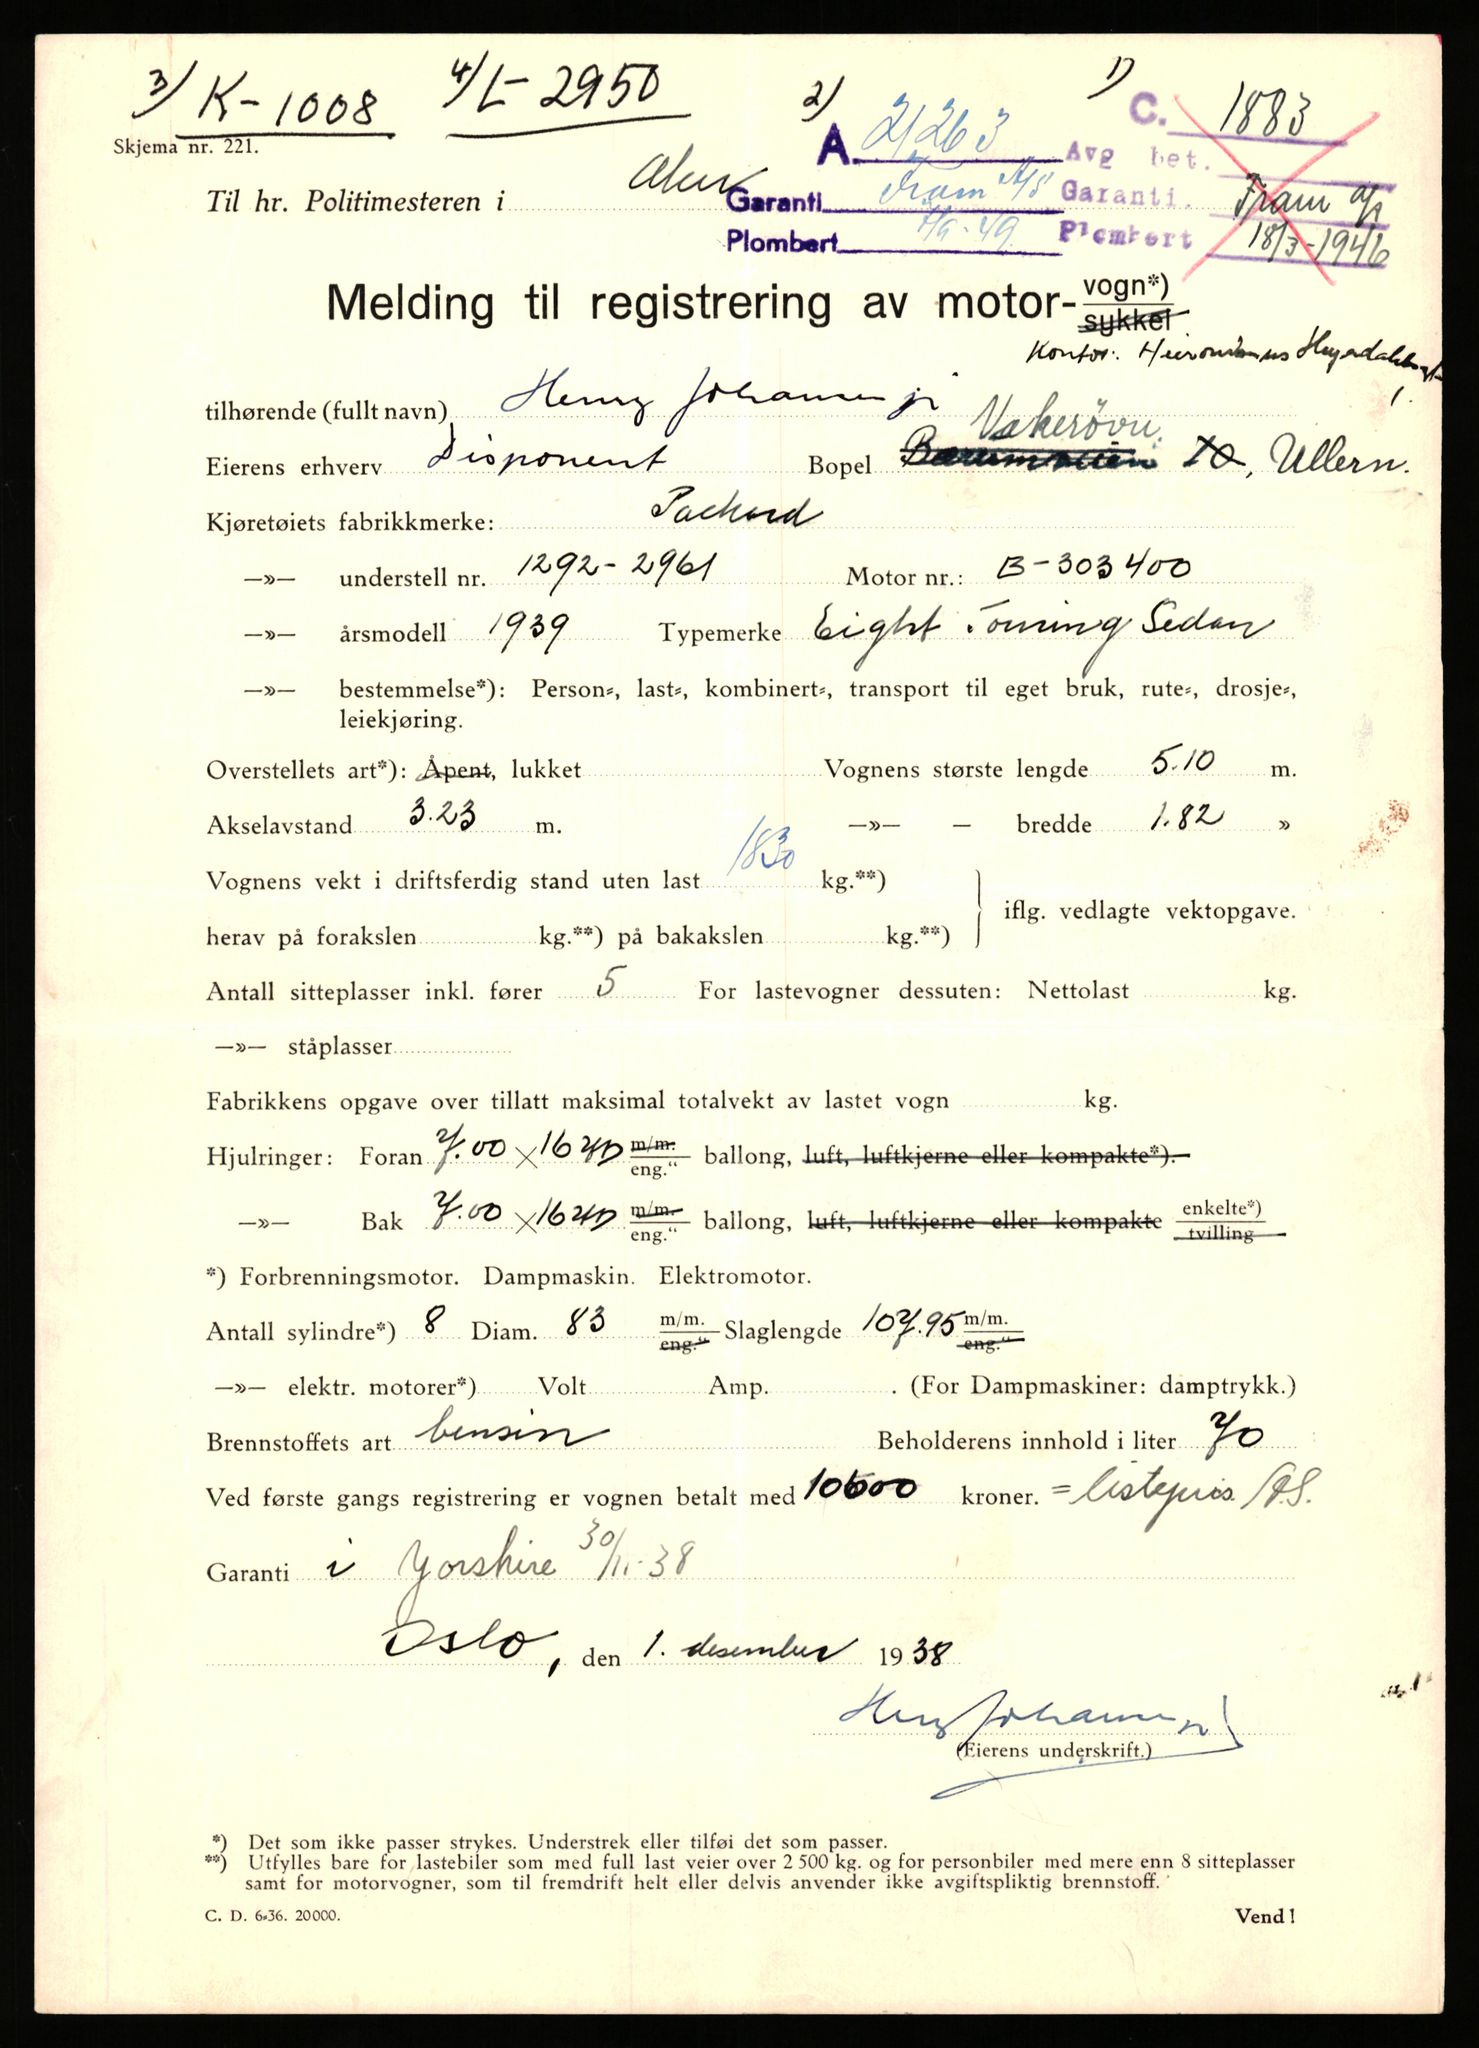 3) K-1008 4) L-2950 2) 1)
Skjema nr. 221.
A. 21263 C. 1883
Avg bet.
Til hr. Politimesteren i Aker
Garanti Fram A/S Garanti. Fram A/S
Plombert Plombert 18/3-1946
Melding til registrering av motor- vogn*)
sykkel
Kontor: Hieronimus Heyerdahlsgt 1
tilhørende (fullt navn) Henry Johansen jr
Vækerövn.
Eierens erhverv Disponent Bopel Bærumsveien, Ullern.
Kjøretøiets fabrikkmerke: Packard
—»— understell nr. 1292-2961 Motor nr.: B-303400
—»— årsmodell 1939 Typemerke Eight Touring Sedan
—»— bestemmelse*): Person-, last-, kombinert-, transport til eget bruk, rute-, drosje-,
leiekjøring.
Overstellets art*): Åpent, lukket Vognens største lengde 5.10 m.
Akselavstand 3.23 m. —»— — bredde 1.82 »
Vognens vekt i driftsferdig stand uten last 1830 kg.**)
iflg. vedlagte vektopgave.
herav på forakslen kg.**) på bakakslen kg.**)
Antall sitteplasser inkl. fører 5 For lastevogner dessuten: Nettolast kg.
—»— ståplasser
Fabrikkens opgave over tillatt maksimal totalvekt av lastet vogn kg.
Hjulringer: Foran 7.00 × 16 m/m. eng." ballong, luft, luftkjerne eller kompakte*).
—»— Bak 7.00 × 16 m/m. eng." ballong, luft, luftkjerne eller kompakte enkelte*) tvilling
*) Forbrenningsmotor. Dampmaskin. Elektromotor.
Antall sylindre*) 8 Diam. 83 m/m. eng." Slaglengde 107.95 m/m. eng."
—»— elektr. motorer*) Volt Amp. . (For Dampmaskiner: damptrykk.)
Brennstoffets art bensin Beholderens innhold i liter 70
Ved første gangs registrering er vognen betalt med 10600 kroner. = listepris.
Garanti i Yorshire 30/11-38
Oslo, den 1. desember 1938
Henry Johansen jr
(Eierens underskrift.)
*) Det som ikke passer strykes. Understrek eller tilføi det som passer.
**) Utfylles bare for lastebiler som med full last veier over 2 500 kg. og for personbiler med mere enn 8 sitteplasser
samt for motorvogner, som til fremdrift helt eller delvis anvender ikke avgiftspliktig brennstoff.
C. D. 6-36. 20000. Vend!